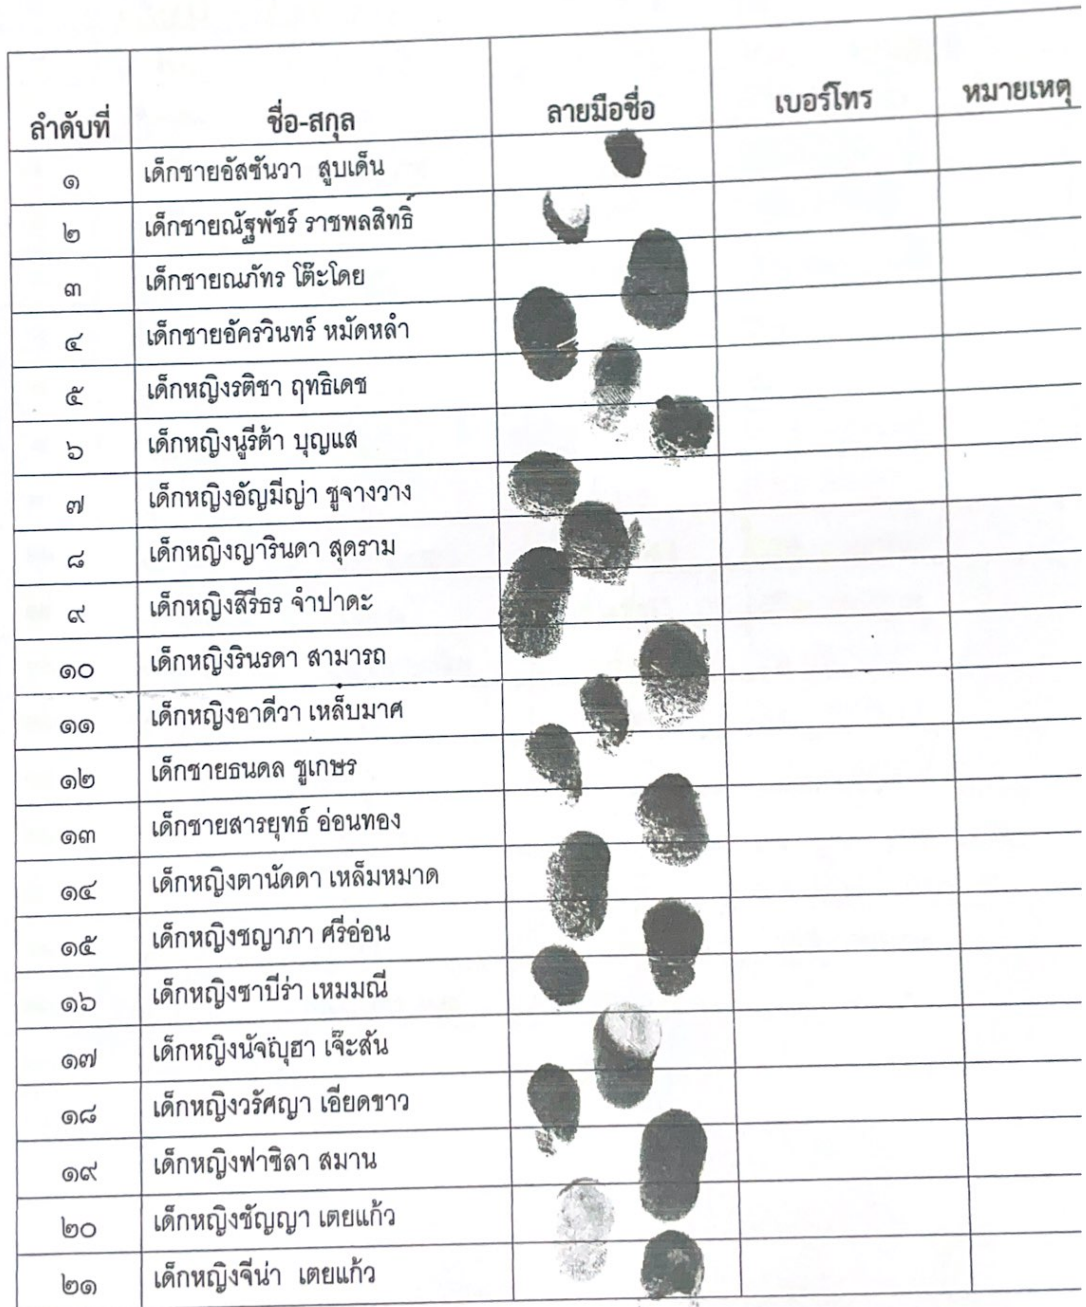 ลำดับที่ ชื่อ-สกุล ลายมือชื่อ เบอร์โทร หมายเหตุ
๑ เด็กชายอัสซันวา สูบเด็น
๒ เด็กชายณัฐพัชร์ ราชพลสิทธิ์
๓ เด็กชายณภัทร โต๊ะโดย
๔ เด็กชายอัครวินทร์ หมัดหลำ
๕ เด็กหญิงรติชา ฤทธิเดช
๖ เด็กหญิงนูรีต้า บุญแส
๗ เด็กหญิงอัญมีญ่า ชูจางวาง
๘ เด็กหญิงญารินดา สุดราม
๙ เด็กหญิงสิรีธร จำปาดะ
๑๐ เด็กหญิงรินรดา สามารถ
๑๑ เด็กหญิงอาดีวา เหล็บมาศ
๑๒ เด็กชายธนดล ชูเกษร
๑๓ เด็กชายสารยุทธ์ อ่อนทอง
๑๔ เด็กหญิงตานัดดา เหล็มหมาด
๑๕ เด็กหญิงชญาภา ศรีอ่อน
๑๖ เด็กหญิงซาบีร่า เหมมณี
๑๗ เด็กหญิงนัจญุฮา เจ๊ะสัน
๑๘ เด็กหญิงวรัศญา เอียดขาว
๑๙ เด็กหญิงฟาซิลา สมาน
๒๐ เด็กหญิงชัญญา เตยแก้ว
๒๑ เด็กหญิงจีน่า เตยแก้ว